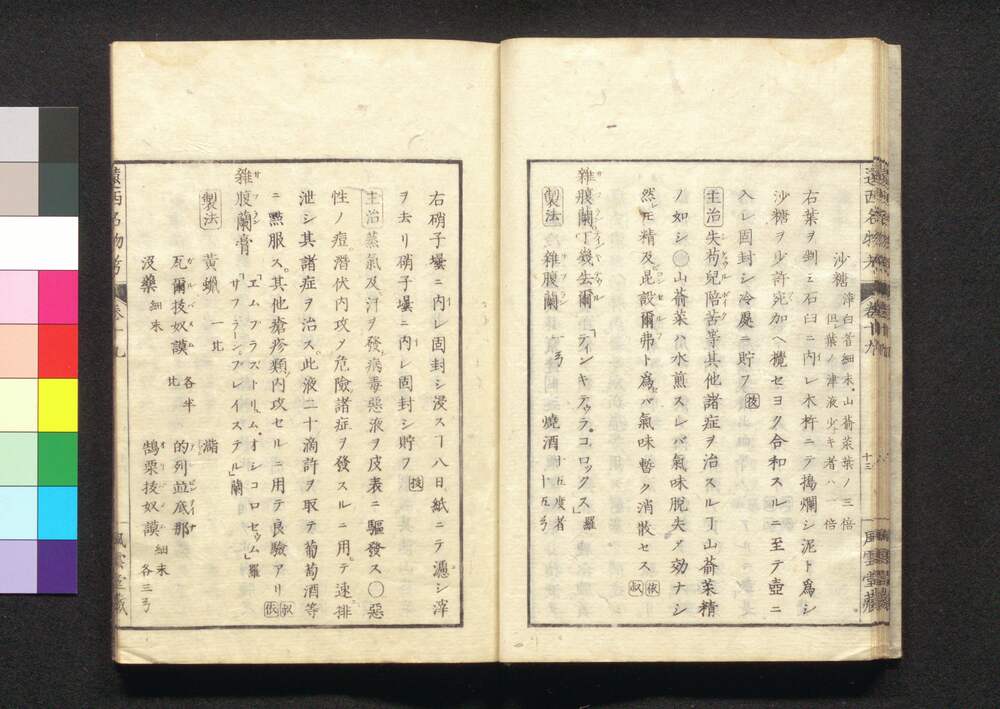 沙糖 淨白者細末、山葵菜葉ノ三倍
但シ葉ノ津液少キ者ハ一倍
右葉ヲ剉ミ石臼ニ内レ木杵ニテ搗爛シ泥ト爲シ
沙糖ヲ少許宛加ヘ攪セヨク合和スルニ至テ壺ニ
入レ固封シ冷處ニ貯フ 扶
主治 失苟兒陪苦等其他諸症ヲ治スルヿ山葵菜精
ノ如シ〇山葵菜ハ水煎スレバ氣味脱失メ効ナシ
然モ精及昆設爾弗ト爲バ氣味暫ク消散セス 依 叔
雜腹蘭丁幾去爾 「ティンキテゥラ、コロックス」羅
製法 雜腹蘭 一弓 燒酒 十五度者 十五弓
右硝子壜ニ内レ固封シ浸スヿ八日紙ニテ濾シ滓
ヲ去リ硝子壜ニ内レ固封シ貯フ 扶
主治 蒸氣及汗ヲ發シ病毒惡液ヲ皮表ニ驅發ス〇惡
性ノ痘潛伏内攻ノ危險諸症ヲ發スルニ用テ速排
泄シ其諸症ヲ治ス此液二十滴許ヲ取テ葡萄酒等
ニ㸃服ス其他瘡疹類内攻セルニ用テ良驗アリ 叔 依
雜腹蘭膏 「エムプラズトリム、オシコロセウム」羅
「サフラーン、プレイステル」蘭
製法 黃蠟 一比 瀝
瓦爾抜奴謨 各半比 的列並底那
沒藥 細末 鵠栗抜奴謨 細末 各三弓
遠西名物考 卷十九 十三 風雲堂藏